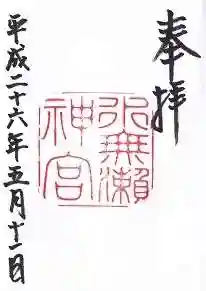 奉拝
水無瀬
神宮
平成二十六年五月十一日